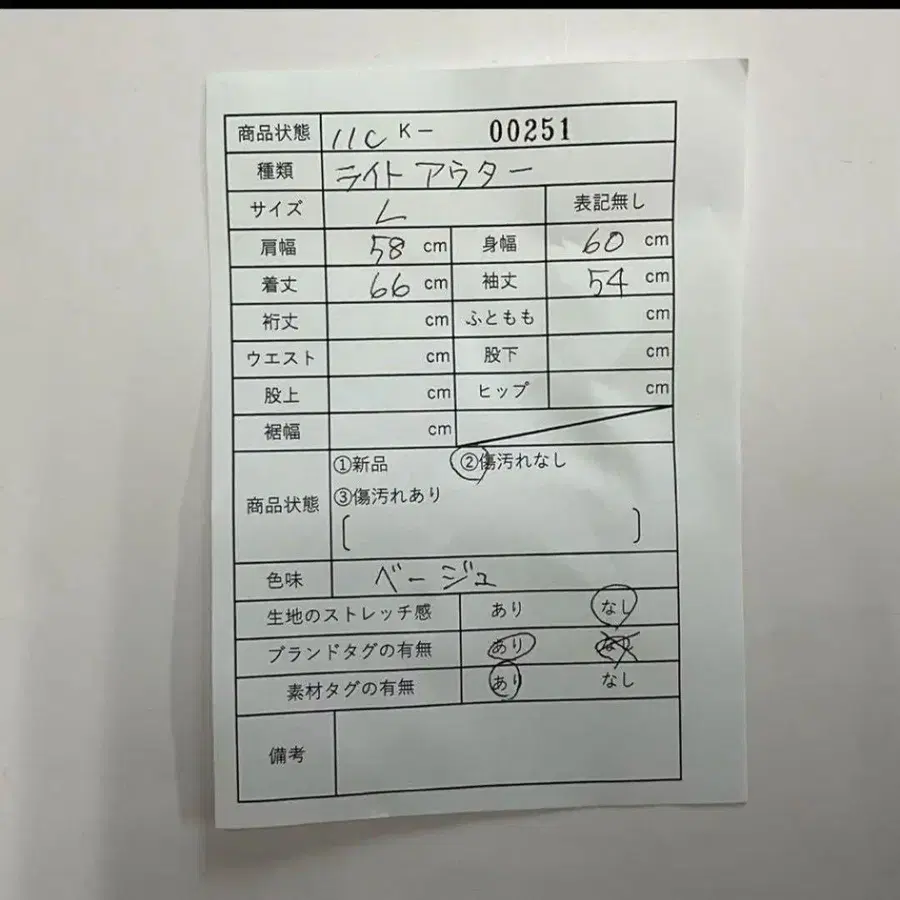 商品状態 11C K－ 00251
種類 ライトアウター
サイズ L 表記無し
肩幅 58 cm 身幅 60 cm
着丈 66 cm 袖丈 54 cm
裄丈 cm ふともも cm
ウエスト cm 股下 cm
股上 cm ヒップ cm
裾幅 cm
商品状態 ①新品 ②傷汚れなし
③傷汚れあり
[ ]
色味 ベージュ
生地のストレッチ感 あり なし
ブランドタグの有無 あり なし
素材タグの有無 あり なし
備考